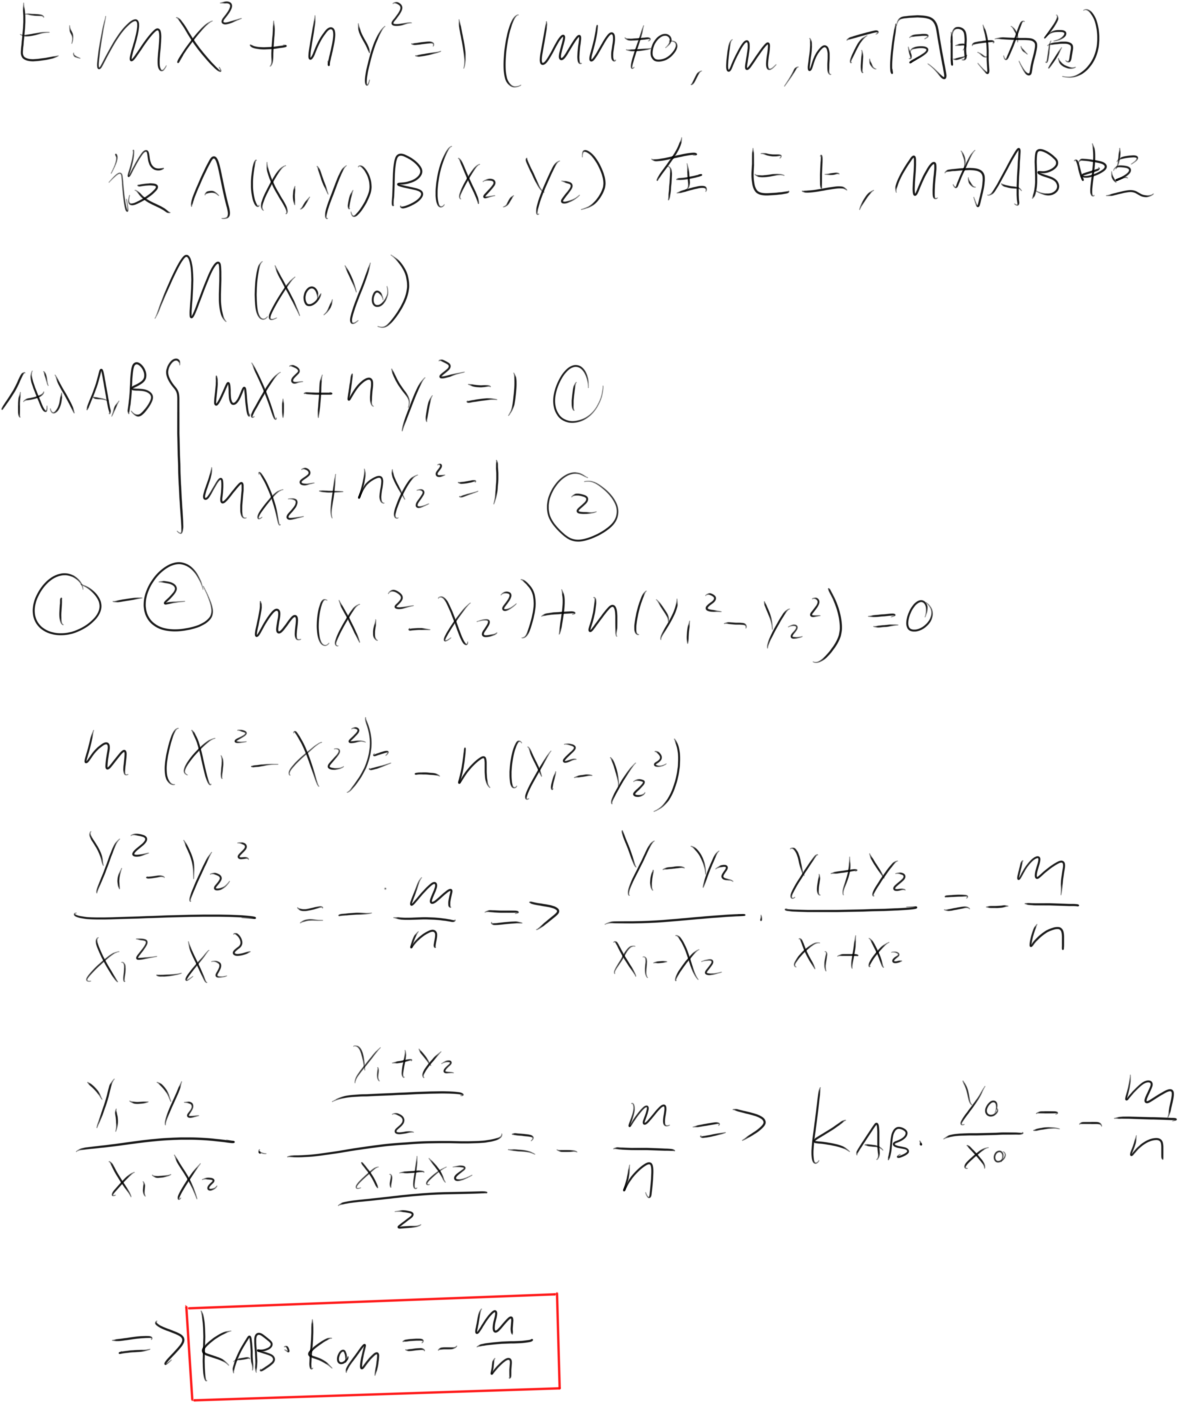 E: mx²+ny²=1 (mn≠0, m,n不同时为负)
设A(x₁,y₁)B(x₂,y₂) 在 E上, M为AB中点
M(x₀,y₀)
代入A,B { mx₁²+ny₁²=1 ①
mx₂²+ny₂²=1 ②
①-② m(x₁²-x₂²)+n(y₁²-y₂²)=0
m(x₁²-x₂²)=-n(y₁²-y₂²)
(y₁²-y₂²)/(x₁²-x₂²) = -m/n => (y₁-y₂)/(x₁-x₂) · (y₁+y₂)/(x₁+x₂) = -m/n
(y₁-y₂)/(x₁-x₂) · ((y₁+y₂)/2)/((x₁+x₂)/2) = -m/n => K_AB · y₀/x₀ = -m/n
=> K_AB · K_OM = -m/n